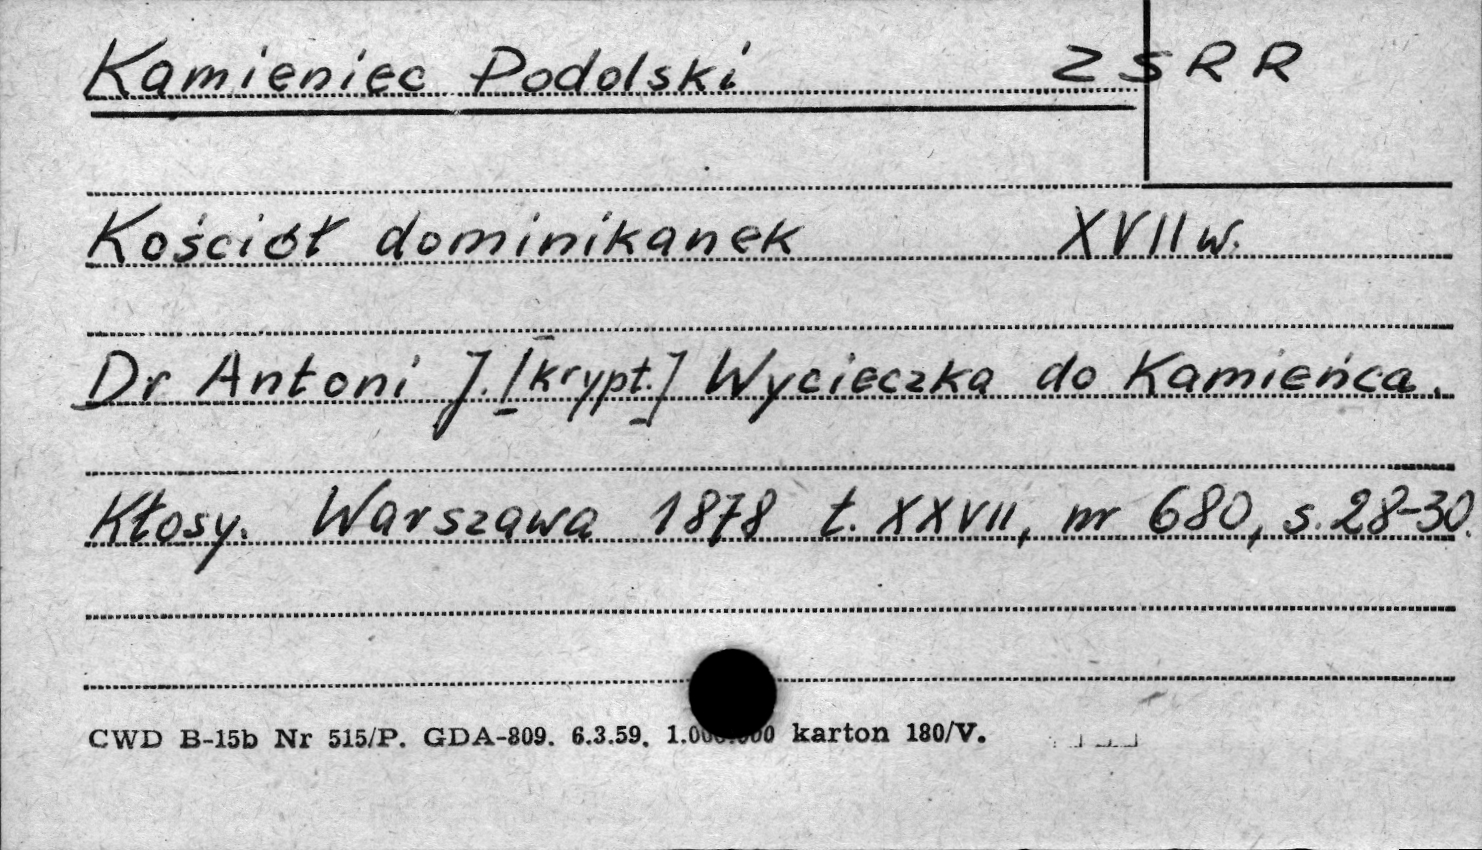 Kamieniec Podolski ZSRR
Kościół dominikanek XVII w.
Dr Antoni J. [krypt.] Wycieczka do Kamieńca.
Kłosy. Warszawa 1878 t. XXVII, nr 680, s. 28-30.
CWD B-15b Nr 515/P. GDA-809. 6.3.59. 1.000.000 karton 180/V.